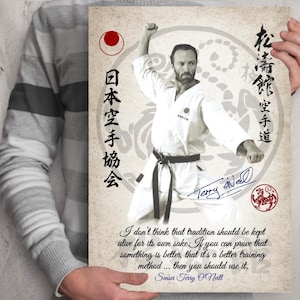 日本空手協会
松濤館
空手道
Terry O'Neill
I don't think that tradition should be kept
alive for its own sake. If you can prove that
something is better, that it's a better training
method ... then you should use it.
Sensei Terry O'Neill